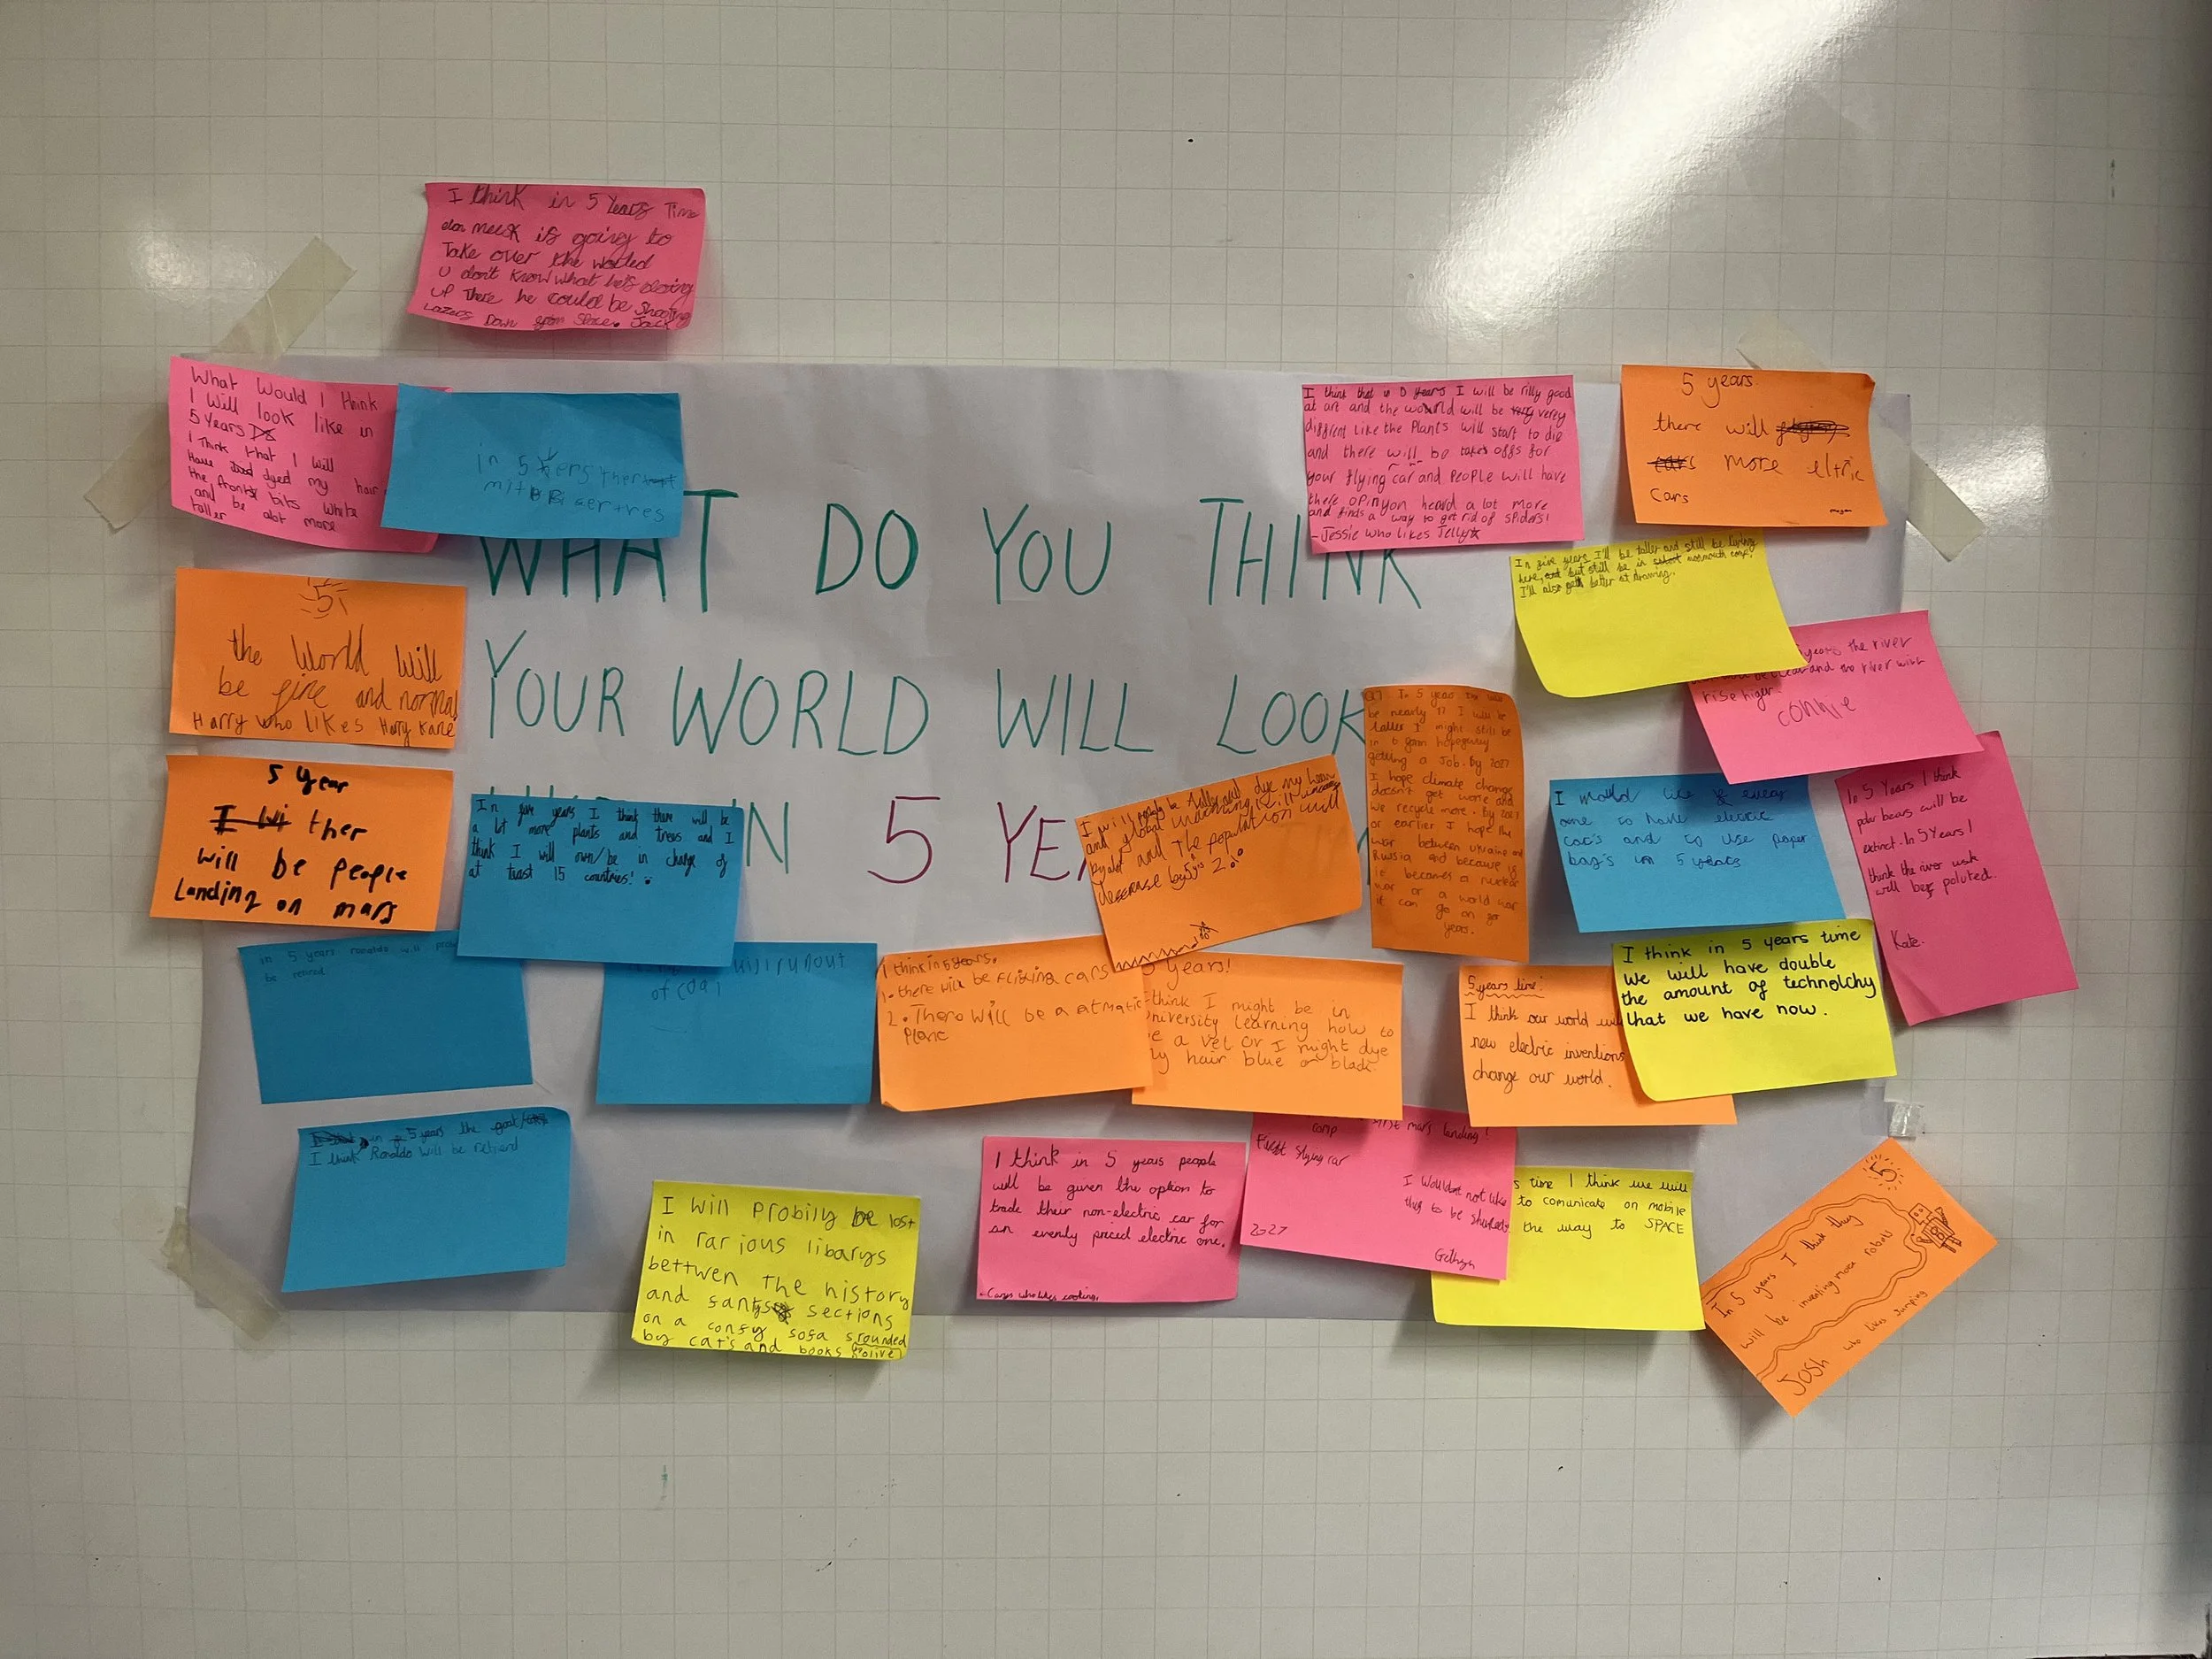 I think in 5 Years Time
elon musk is going to
Take over the worled
U don't know what he's doing
up There he could be shooting
Lazers Down from Space. Jack
What Would I think
I Will look like in
5 Years
I Think that I will
Have dyed my hair
the front bits white
and be alot more
taller
in 5
I think that in years I will be rilly good
at art and the world will be verey
diffrent like the Plants will start to die
and there will be takes offs for
your flying car and People will have
there opinyon heard a lot more
and finds a way to get rid of spiders!
-Jessie who likes Jelly
5 years
there will
more eltric
cars
WHAT DO YOU THINK
YOUR WORLD WILL LOOK
IN 5 YEA
In five years I'll be taller and still be living
here, but still be in monmouth comp.
I'll also get better at drawing.
years the river
and the river will
rise higer
connie
5
the World will
be fine and normal
Harry who likes Harry Kane
5 Year
ther
will be people
Landing on mars
In five years I think there will be
a lot more plants and trees and I
think I will own/be in charge of
at least 15 countries!
I will be taller will dye my hair
and global warming will
and The population will
decrease by 2%
In 5 years time I will
be nearly 17 I will be
taller I might still be
in 6 form hopefully
getting a Job. By 2027
I hope climate change
doesn't get worse and
we recycle more. By 2027
or earlier I hope the
war between ukraine and
Russia end because if
it becomes a nuclear
war or a world war
it can go on for
years.
I would like every
one to have electric
car's and to use paper
bag's in 5 years
In 5 Years I think
polar bears will be
extinct. In 5 Years I
think the river usk
will be poluted.
Kate.
in 5 years ronaldo will
be retired
will runout
of coal
I think in 5 years.
1. there will be flying cars
2. There will be a atmatic
Plane
5 years!
think I might be in
university learning how to
a vet or I might dye
hair blue or black.
5 years time:
I think our world will
new electric inventions
change our world.
I think in 5 years time
we will have double
the amount of technolchy
that we have now.
in 5 years the goat
I think Ronaldo will be retired
I will probily be lost
in rarious libarys
bettwen the history
and sections
on a comfy sofa srounded
by cat's and books olive
I think in 5 years people
will be given the option to
trade their non-electric car for
an evenly priced electric one.
who likes cooking.
comp
first mars landing!
First flying car
I would not like
this to be shared
2027
Gethyn
s time I think we will
to comunicate on mobile
the way to SPACE
5
In 5 years I think they
will be inventing more robots
Josh who likes Jumping